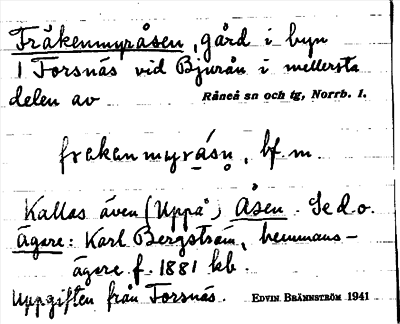 Fräkenmyråsen, gård i byn
1 Forsnäs vid Bjurån i mellersta
delen av Råneå sn och tg, Norrb. l.
frekenmyråsn, bf. m.
Kallas även (Uppå) Åsen. Se d.o.
Ägare: Karl Bergström, hemmans-
ägare f. 1881 kb.
Uppgiften från Forsnäs. EDVIN BRÄNNSTRÖM 1941